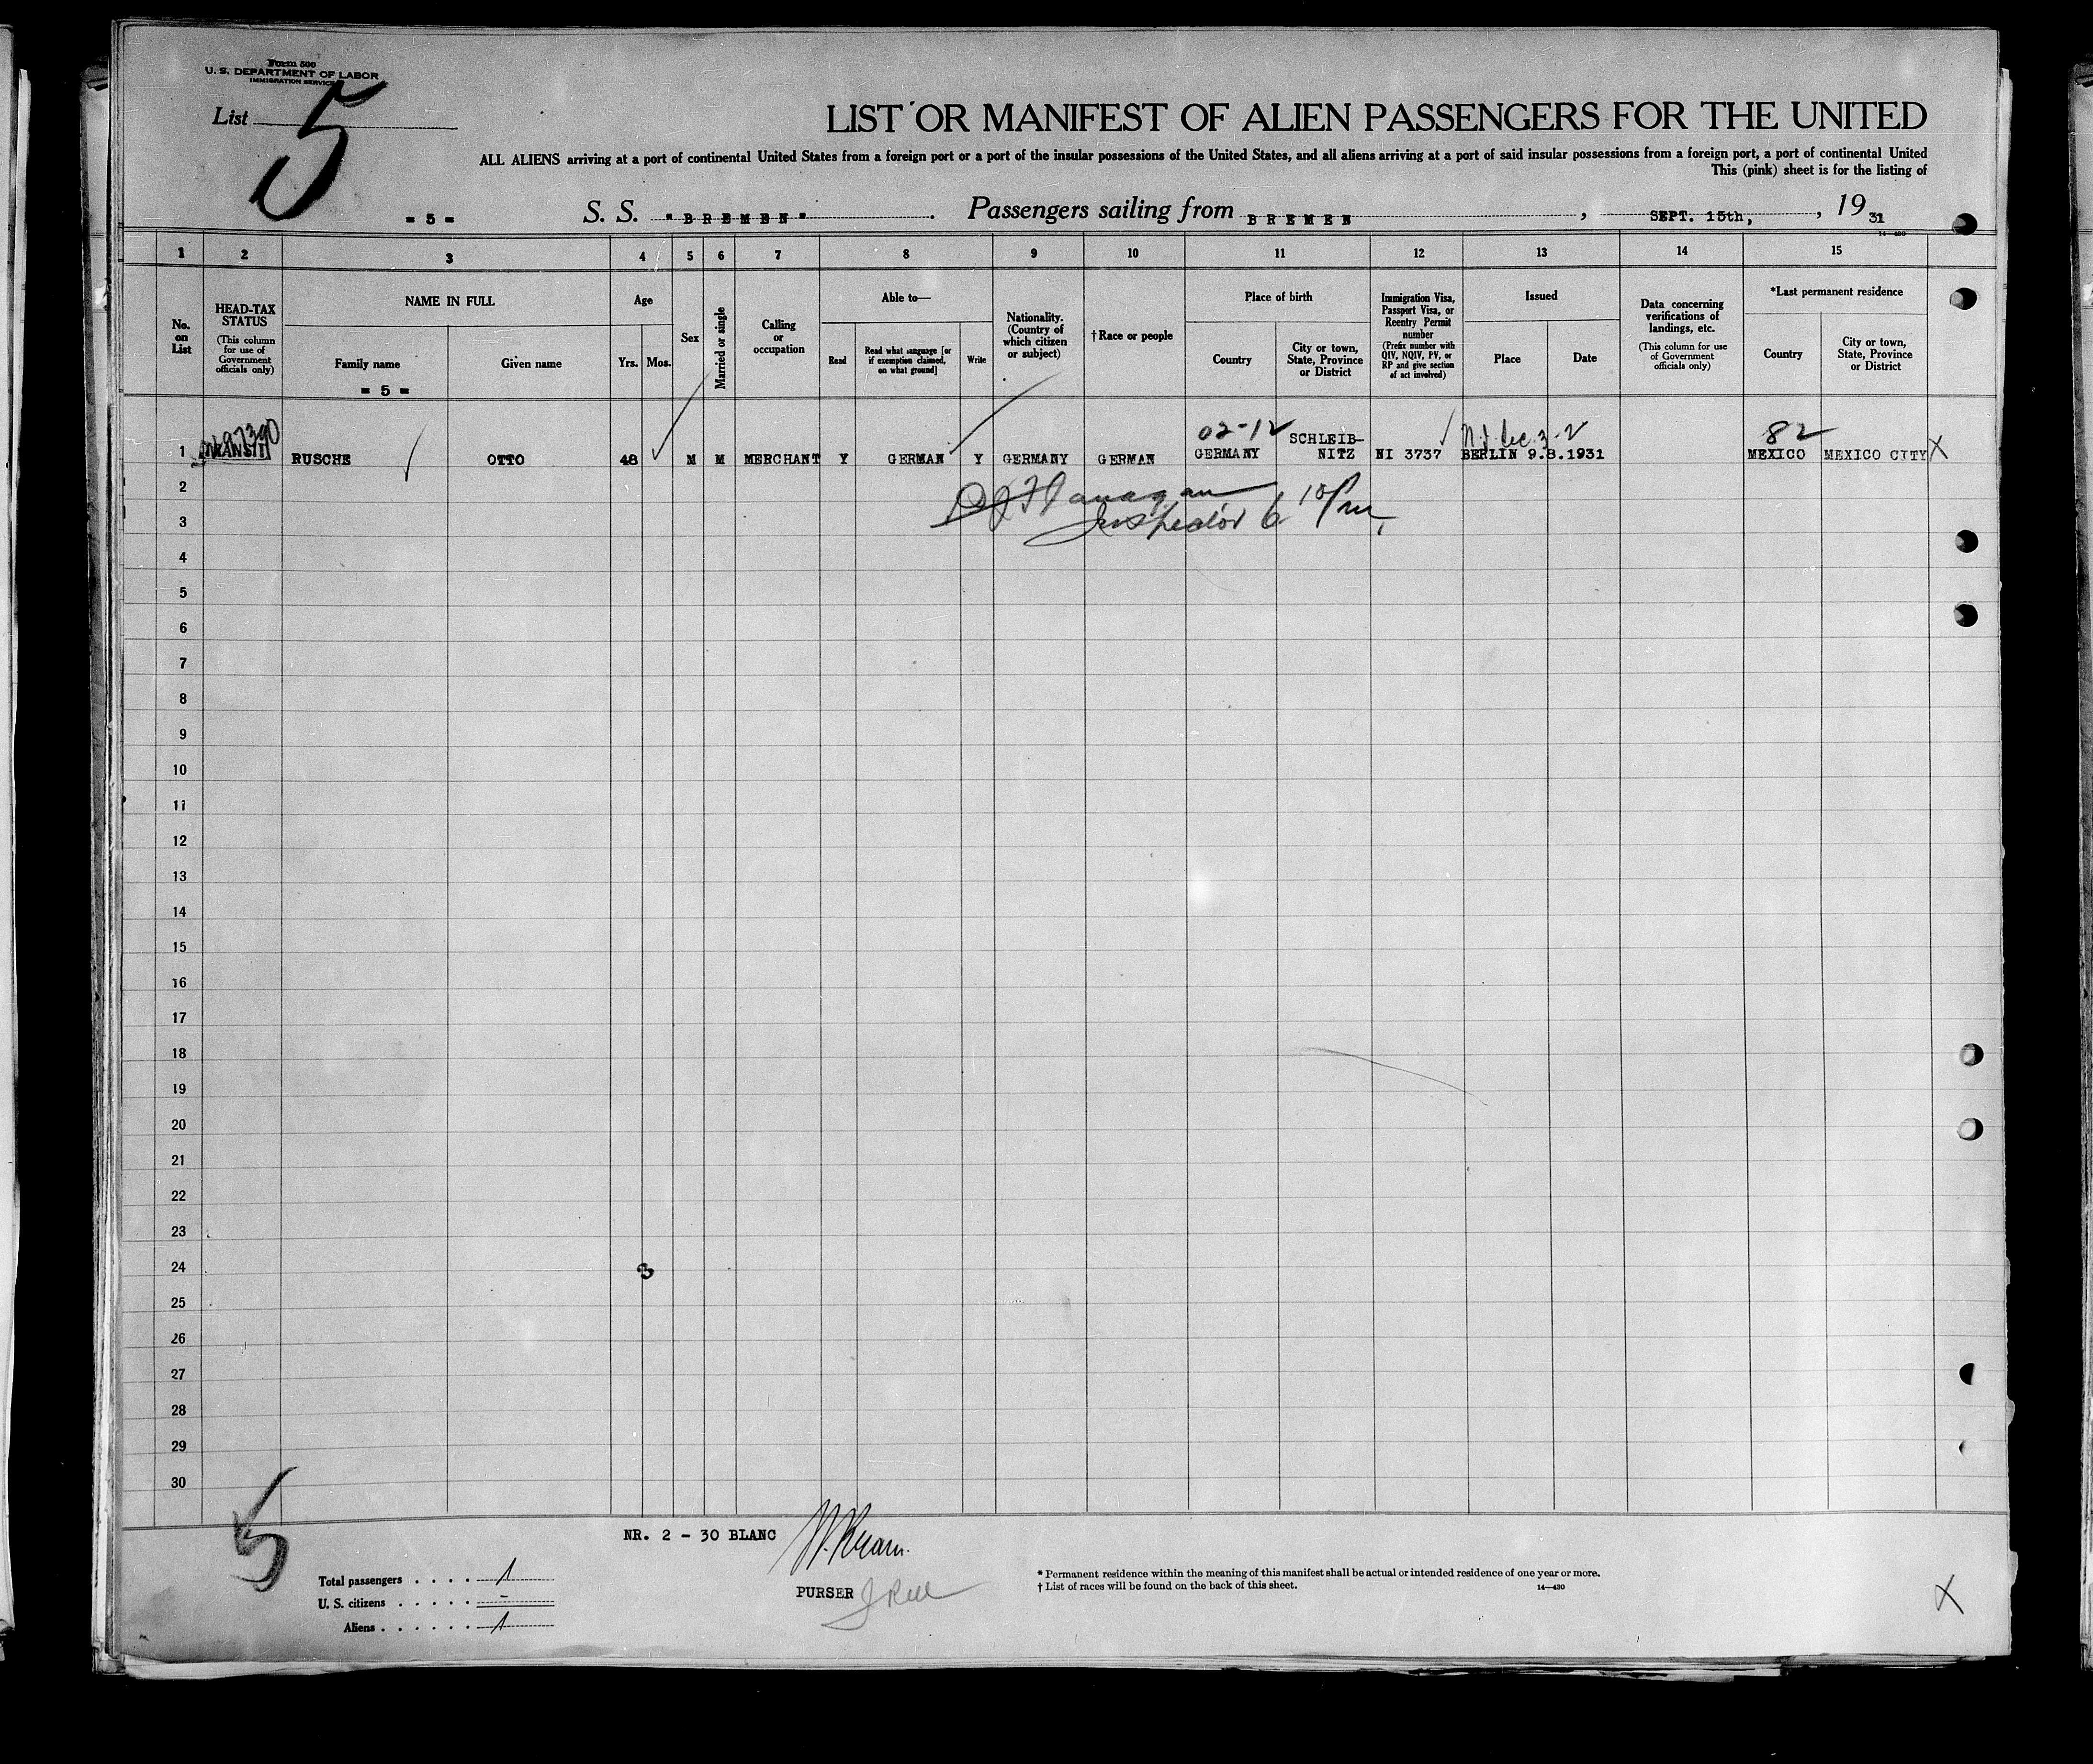 Form 500
U. S. DEPARTMENT OF LABOR
IMMIGRATION SERVICE
List 5
LIST OR MANIFEST OF ALIEN PASSENGERS FOR THE UNITED
ALL ALIENS arriving at a port of continental United States from a foreign port or a port of the insular possessions of the United States, and all aliens arriving at a port of said insular possessions from a foreign port, a port of continental United
This (pink) sheet is for the listing of
= 5 = S. S. "BREMEN". Passengers sailing from BREMEN, SEPT. 15th, , 19 31
14—430
1 2 3 4 5 6 7 8 9 10 11 12 13 14 15
No. on List
HEAD-TAX STATUS
(This column for use of Government officials only)
NAME IN FULL
Family name
= 5 =
Given name
Age
Yrs. Mos.
Sex
Married or single
Calling or occupation
Able to—
Read
Read what language [or if exemption claimed, on what ground]
Write
Nationality. (Country of which citizen or subject)
† Race or people
Place of birth
Country
City or town, State, Province or District
Immigration Visa, Passport Visa, or Reentry Permit number
(Prefix number with QIV, NQIV, PV, or RP and give section of act involved)
Issued
Place
Date
Data concerning verifications of landings, etc.
(This column for use of Government officials only)
*Last permanent residence
Country
City or town, State, Province or District
02-12 82
1 TRANSIT RUSCHE OTTO 48 M M MERCHANT Y GERMAN Y GERMANY GERMAN GERMANY SCHLEIB-NITZ NI 3737 BERLIN 9.8.1931 MEXICO MEXICO CITY X
2 Flanagan
3 Inspector 6 10 Pm
4
5
6
7
8
9
10
11
12
13
14
15
16
17
18
19
20
21
22
23
24
25
26
27
28
29
30
5
NR. 2 - 30 BLANC
PURSER
Total passengers . . . . 1
U. S. citizens . . . . . -
Aliens . . . . . . 1
* Permanent residence within the meaning of this manifest shall be actual or intended residence of one year or more.
† List of races will be found on the back of this sheet.
14—430
X